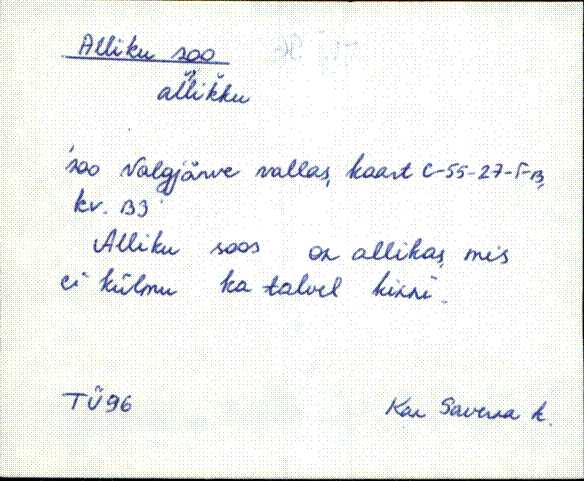 Alliku soo
al̆lik̆ku
'soo Valgjärve vallas, kaart C-55-27-Г-В,
kv. B3
Alliku soos on allikas, mis
ei külmu ka talvel kinni.
TÜ96
Kan Saverna k.